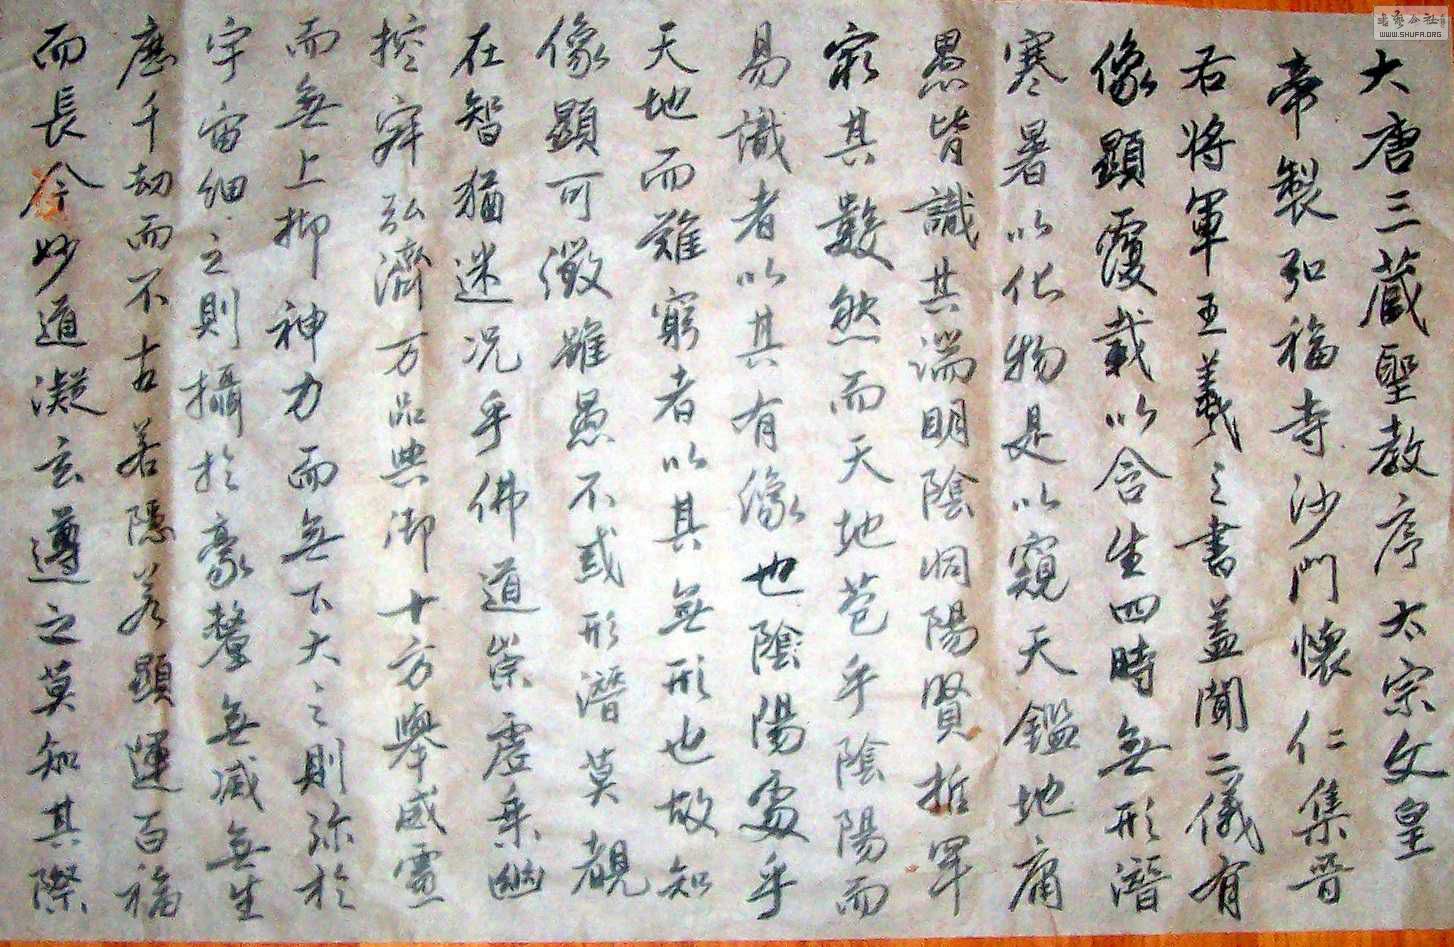 大唐三藏聖教序太宗文皇
帝製弘福寺沙門懷仁集晉
右將軍王羲之書蓋聞二儀有
像顯覆載以含生四時無形潛
寒暑以化物是以窺天鑑地庸
愚皆識其端明陰洞陽賢哲罕
窮其數然而天地苞乎陰陽而
易識者以其有像也陰陽處乎
天地而難窮者以其無形也故知
像顯可徵雖愚不惑形潛莫覩
在智猶迷況乎佛道崇虛乘幽
控寂弘濟万品典御十方舉威靈
而無上抑神力而無下大之則弥於
宇宙細之則攝於豪釐無滅無生
歷千劫而不古若隱若顯運百福
而長今妙道凝玄遵之莫知其際
书艺公社
WWW.SHUFA.ORG